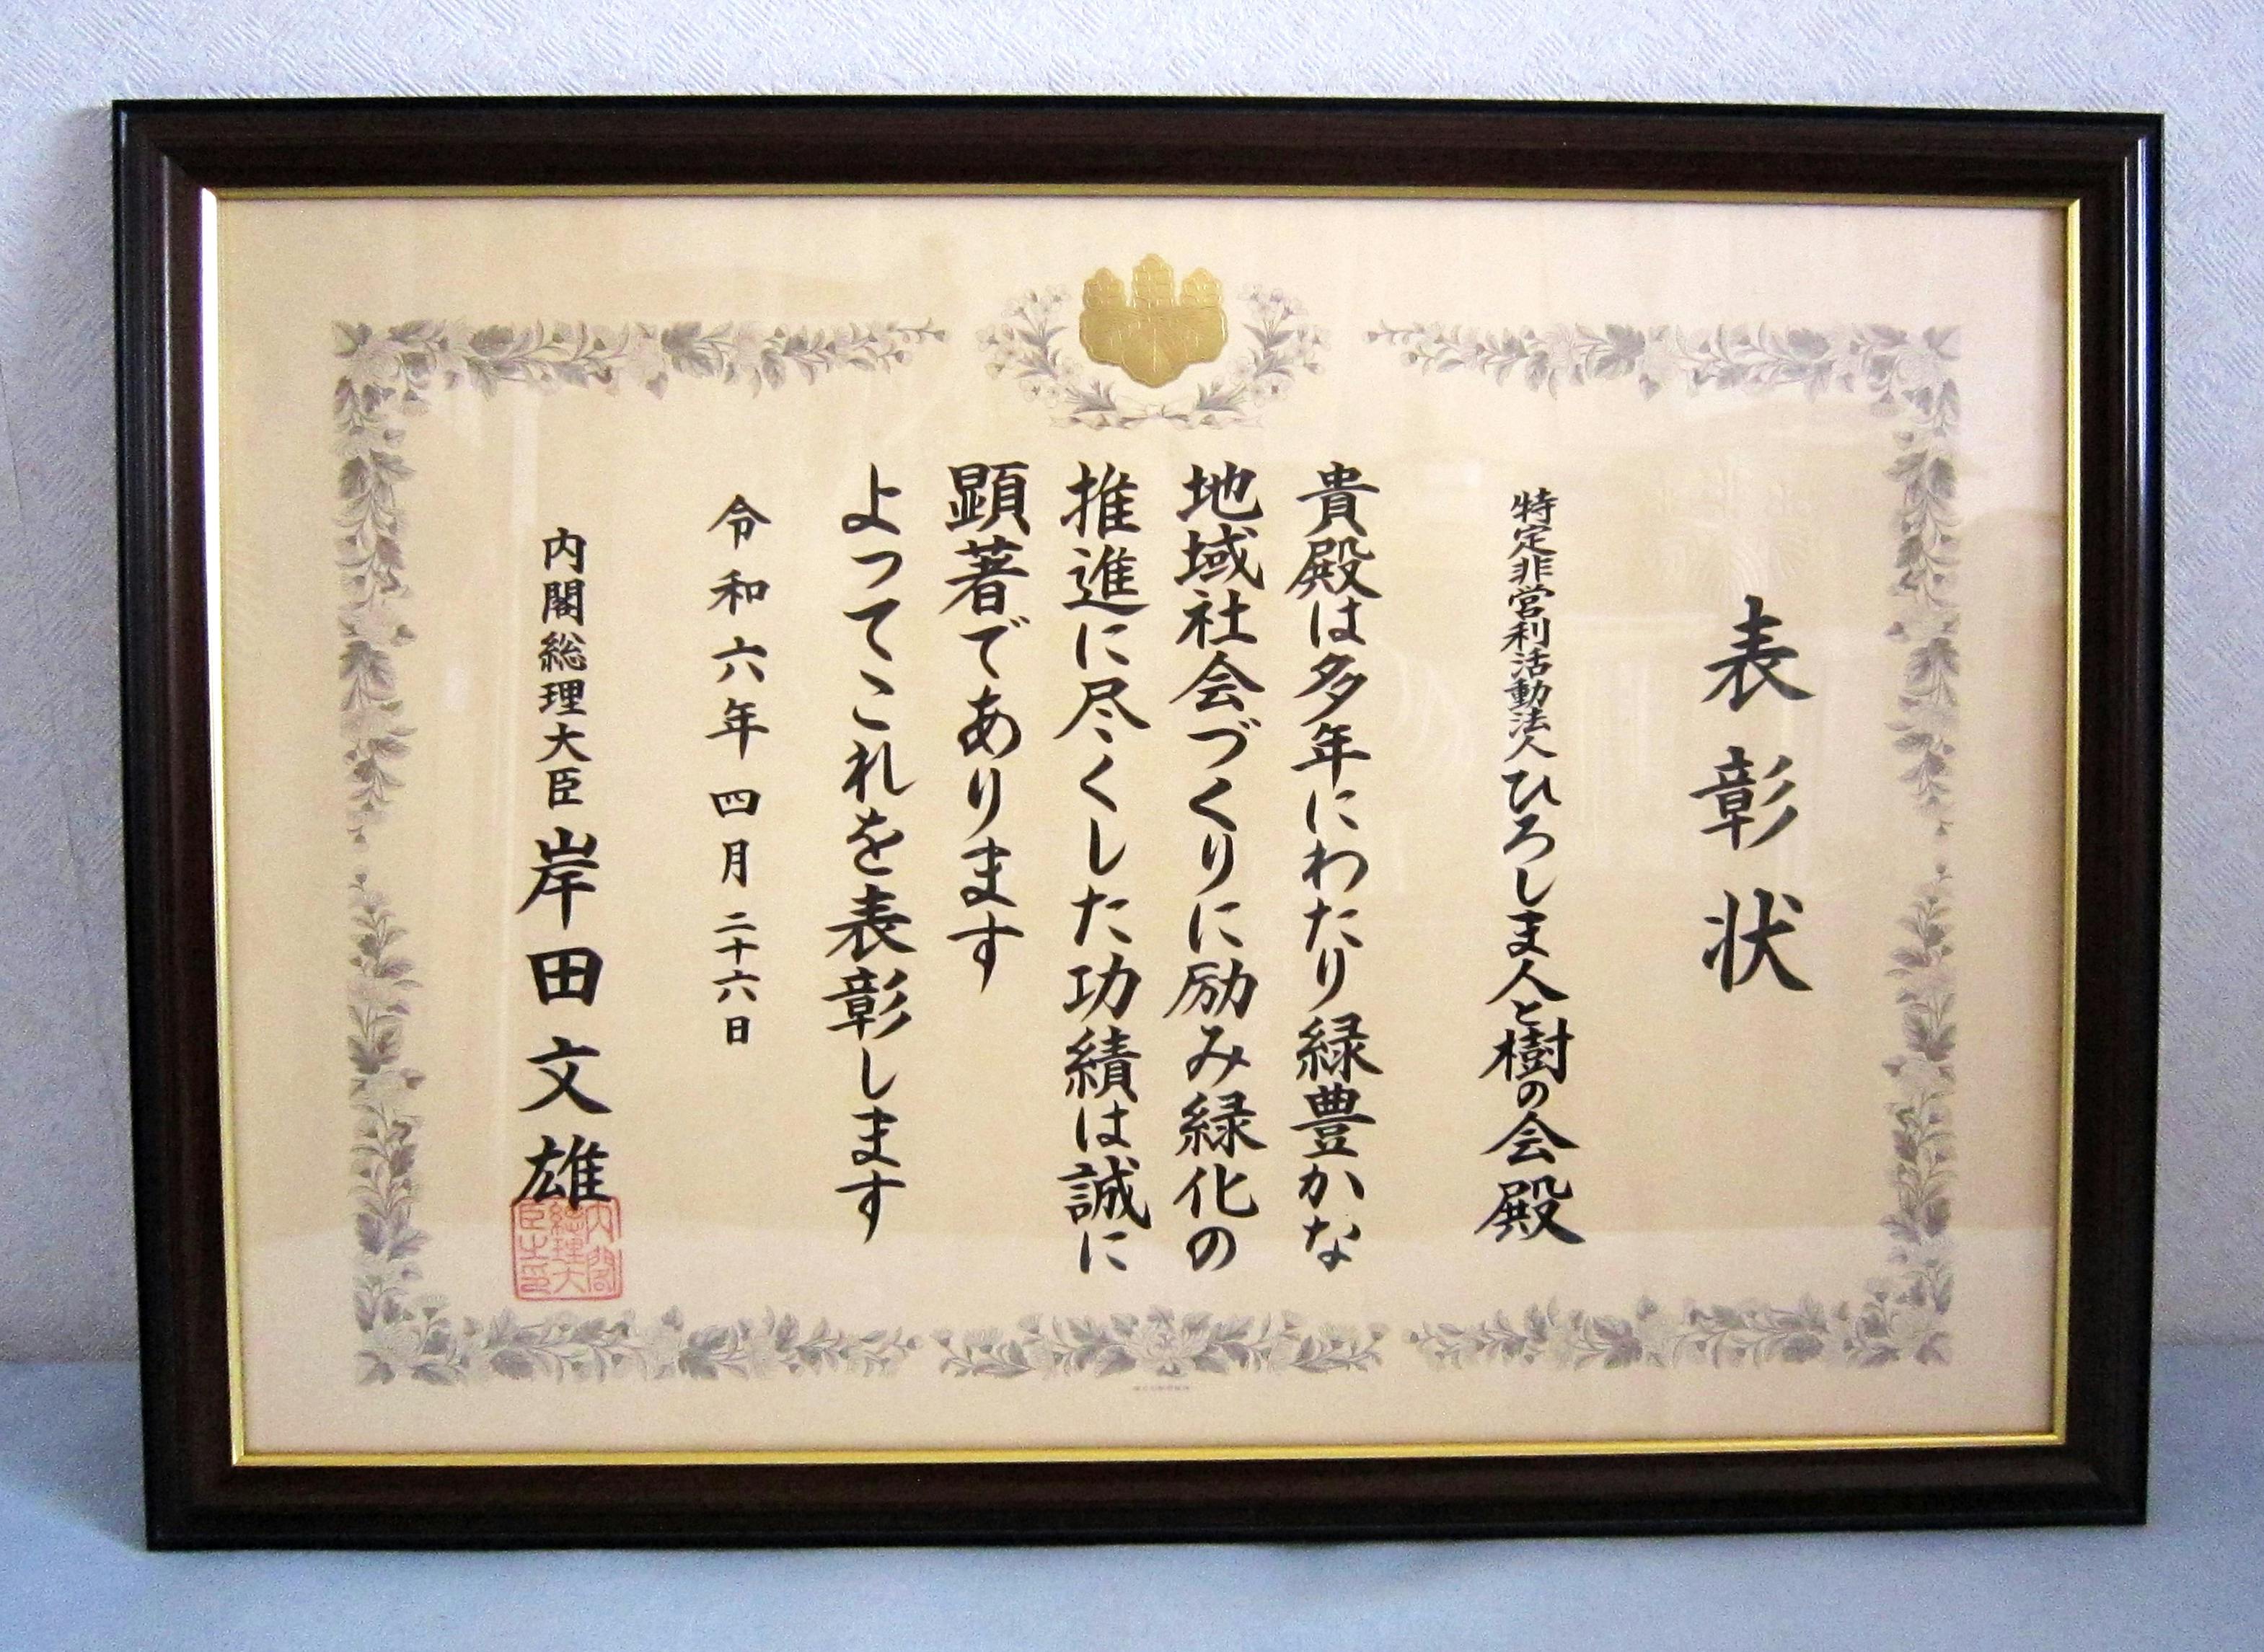 表彰状
特定非営利活動法人ひろしま人と樹の会殿
貴殿は多年にわたり緑豊かな
地域社会づくりに励み緑化の
推進に尽くした功績は誠に
顕著であります
よってこれを表彰します
令和六年四月二十六日
内閣総理大臣岸田文雄
内閣
総理大
臣之印